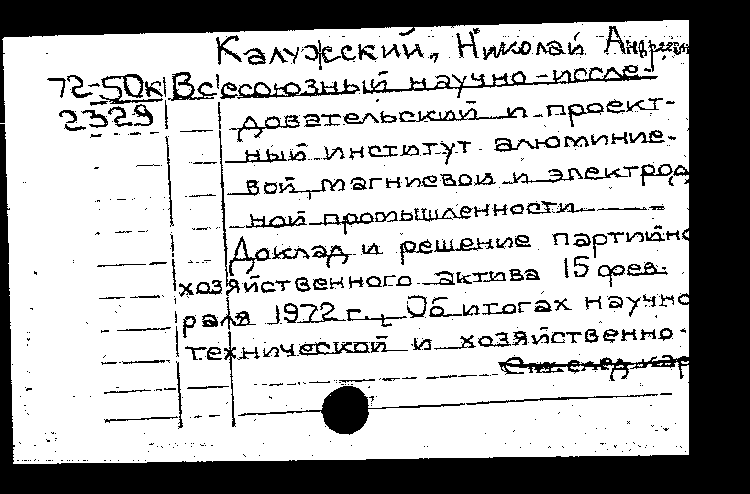 Калужский, Николай Андреев
72-50к Всесоюзный научно-иссле-
2329 довательский и проект-
ный институт алюминие-
вой, магниевой и электрод
ной промышленности
Доклад и решение партийно
хозяйственного актива 15 фев-
раля 1972 г. "Об итогах научно
технической и хозяйственно-
См. след. кар